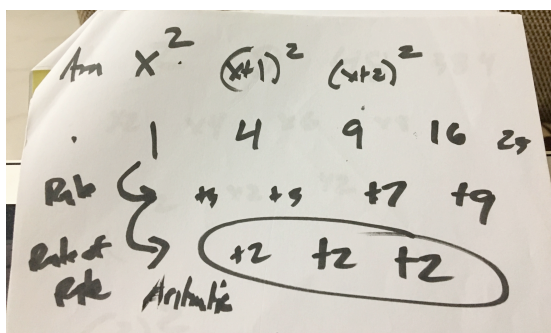 x² (x+1)² (x+2)²
1 4 9 16 25
Rate +3 +5 +7 +9
Rate of +2 +2 +2
Rate Arithmetic